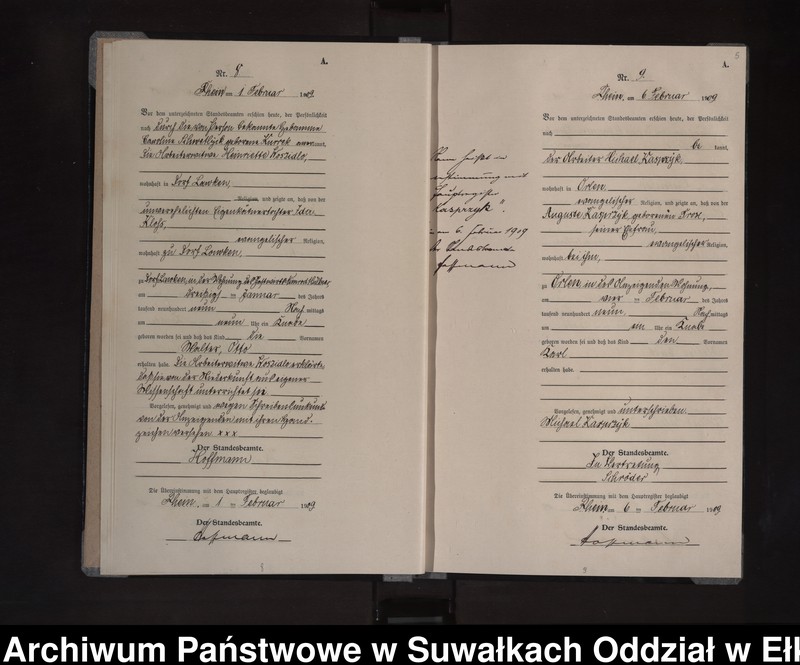 A.
Nr. 8
Rhein, am 1 Februar 1909
Vor dem unterzeichneten Standesbeamten erschien heute, der Persönlichkeit
nach durch die von Person bekannte Hebamme
Caroline geborene kannt,
die Arbeiterwitwe Henriette Koszidlo,
wohnhaft in Dorf Lawken,
Religion, und zeigte an, daß von der
unverehelichten Eigenkätnertochter Ida
Kloß,
evangelischer Religion,
wohnhaft zu Dorf Lawken,
zu Dorf Lawken, in der Wohnung des
am Januar des Jahres
tausend neunhundert neun Nachmittags
um neun Uhr ein Knabe
geboren worden sei und daß das Kind die Vornamen
Walter, Otto
erhalten habe. Die Arbeiterwitwe Koszidlo erklärte,
daß sie von der Niederkunft aus eigener
Wissenschaft unterrichtet sei.
Vorgelesen, genehmigt und wegen Schreibensunkunde
von der Anzeigenden mit ihren Hand-
zeichen versehen xxx
Der Standesbeamte.
Hoffmann
Die Übereinstimmung mit dem Hauptregister beglaubigt
Rhein, am 1 ten Februar 1909
Der Standesbeamte.
Hoffmann
8
Hauptregister
Kasprzyk".
am 6. Februar 1909
Der Standesbeamte
Hoffmann
5
A.
Nr. 9
Rhein, am 6 Februar 1909
Vor dem unterzeichneten Standesbeamten erschien heute, der Persönlichkeit
nach
be kannt,
der Arbeiter Michael Kasprzyk
wohnhaft in Orlen,
evangelischer Religion, und zeigte an, daß von der
Auguste Kasprzyk geborenen
seiner Ehefrau,
evangelischer Religion,
wohnhaft bei ihm,
zu Orlen in des Anzeigenden Wohnung,
am vier ten Februar des Jahres
tausend neunhundert neun Nachmittags
um Uhr ein Knabe
geboren worden sei und daß das Kind den Vornamen
Karl
erhalten habe.
Vorgelesen, genehmigt und unterschrieben
Michael Kasprzyk
Der Standesbeamte.
In Vertretung
Schröder
Die Übereinstimmung mit dem Hauptregister beglaubigt
Rhein, am 6 ten Februar 1909
Der Standesbeamte.
Hoffmann
9
Archiwum Państwowe w Suwałkach Oddział w Ełk